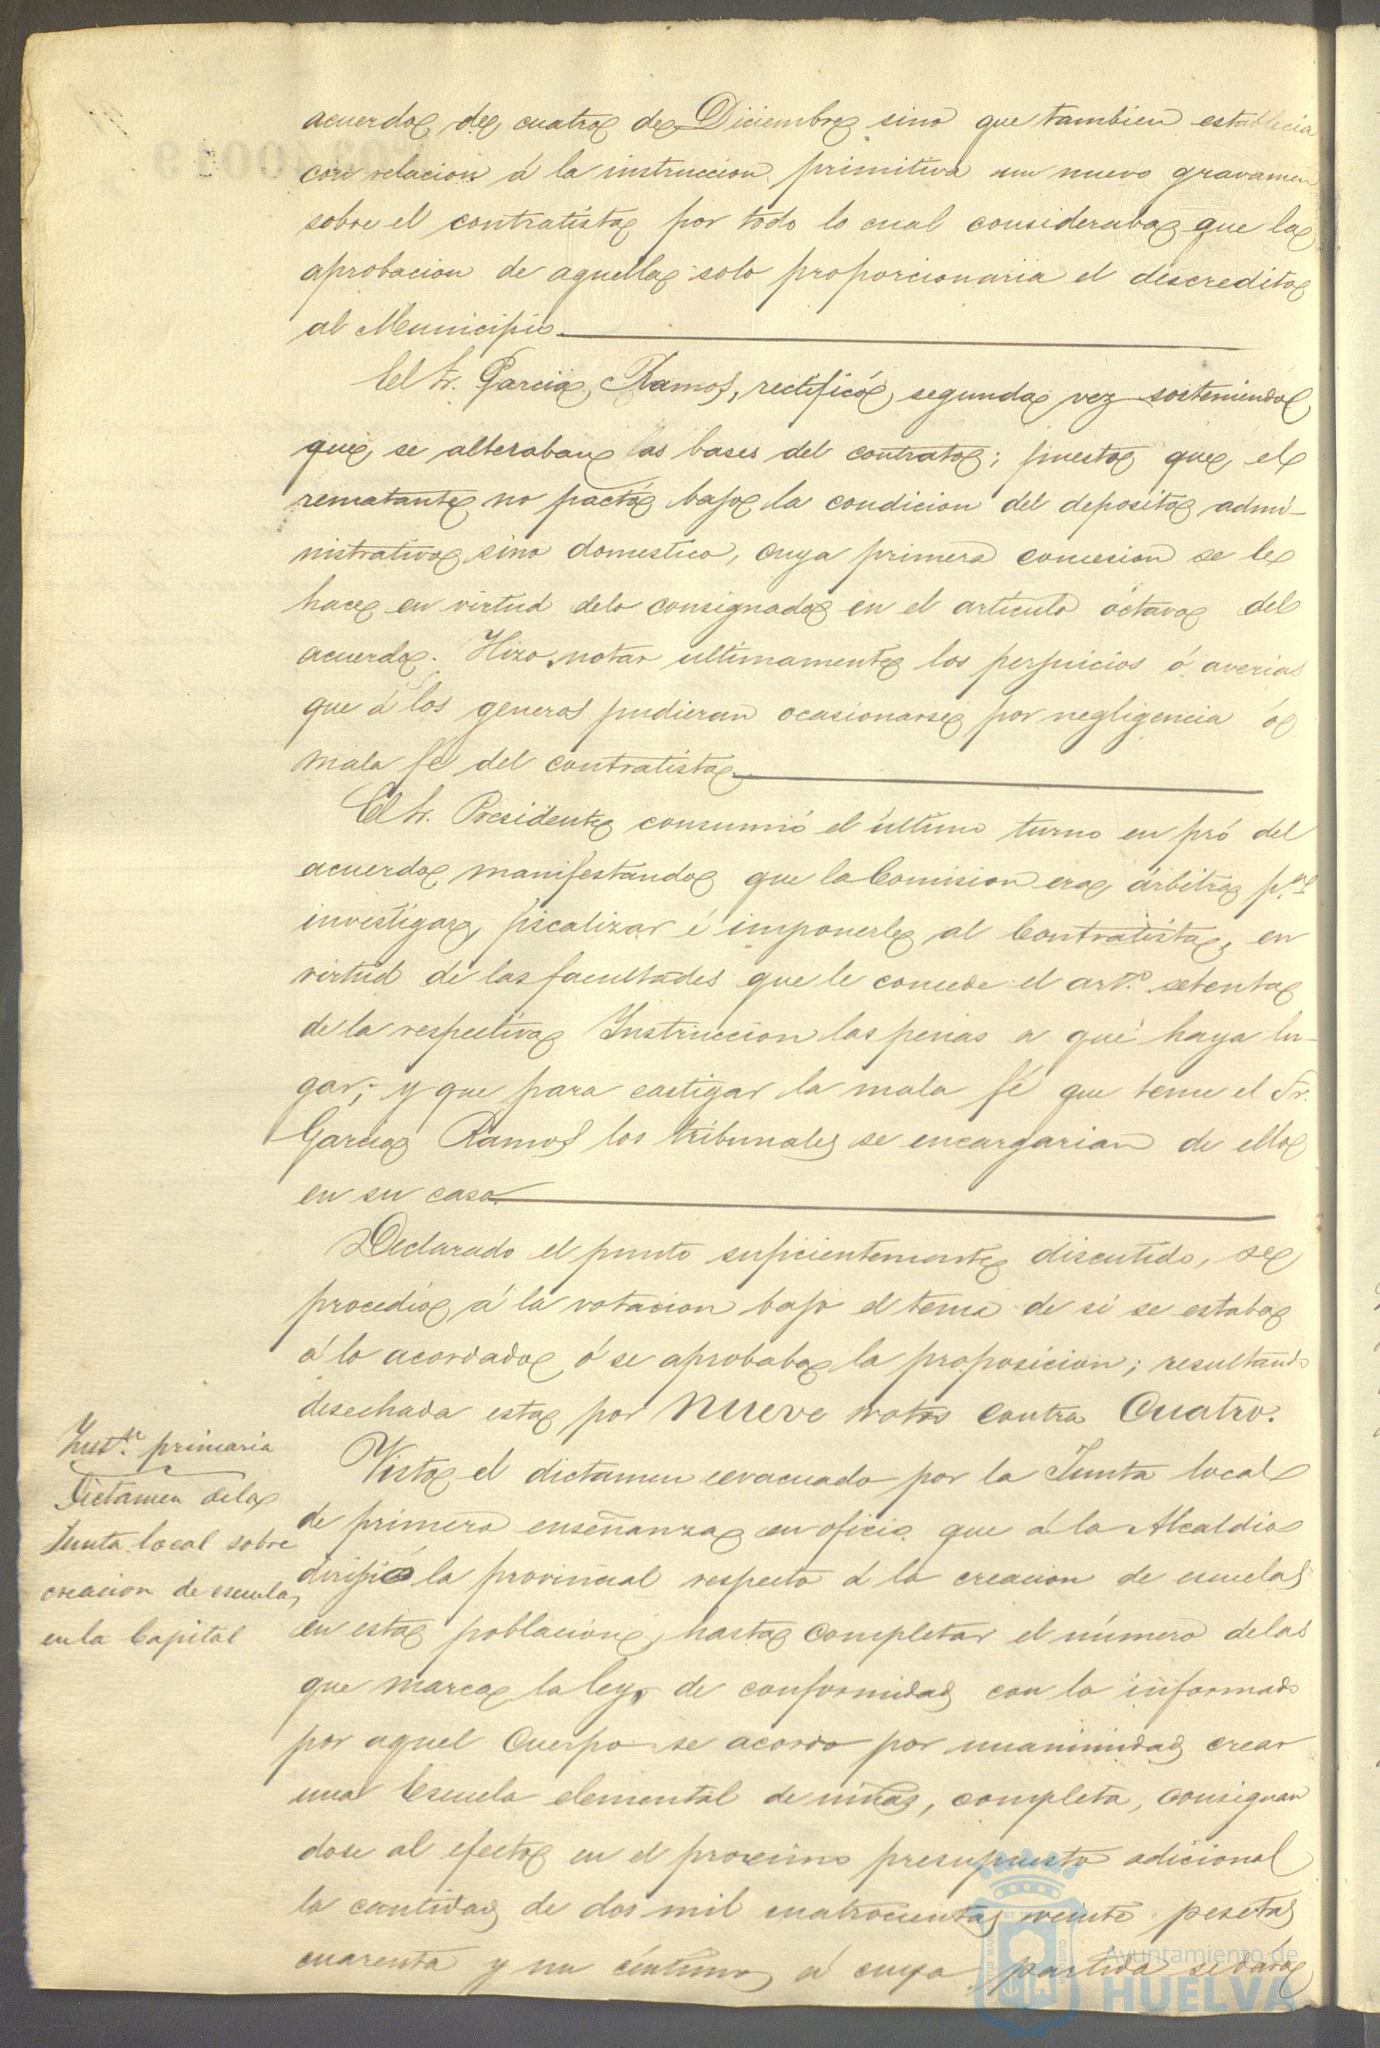 acuerdo de cuatro de Diciembre sino que tambien establecia
con relacion á la instruccion primitiva un nuevo gravamen
sobre el contratista por todo lo cual consideraba que la
aprobacion de aquella solo proporcionaria el descredito
al Municipio.
El Sr. Garcia Ramos, rectificó segunda vez sosteniendo
que se alteraban las bases del contrato; puesto que el
rematante no pactó bajo la condicion del deposito admi-
nistrativo sino domestico, cuya primera concesion se le
hace en virtud delo consignado en el articulo octavo del
acuerdo. Hizo notar ultimamente los perjuicios ó averias
que á los generos pudieran ocasionarse por negligencia ó
mala fé del contratista.
El Sr. Presidente consumió el último turno en pró del
acuerdo manifestando que la Comision era árbitra p.ª
investigar, fiscalizar é imponerle al Contratista, en
virtud de las facultades que le concede el art.º setenta
de la respectiva Instruccion las penas a que haya lu-
gar; y que para castigar la mala fé que teme el Sr.
Garcia Ramos los tribunales se encargarian de ello
en su caso.
Declarado el punto suficientemente discutido, se
procedió á la votacion bajo el tema de si se estaba
á lo acordado ó se aprobaba la proposicion; resultando
desechada esta por nueve votos contra Cuatro.
Inst.ⁿ primaria
Dictamen dela
Junta local sobre
creacion de escuelas
en la Capital
Visto el dictamen evacuado por la Junta local
de primera enseñanza en oficio que á la Alcaldia
dirijió la provincial respecto á la creacion de escuelas
en esta poblacion, hasta completar el número delas
que marca la ley, de conformidad con lo informado
por aquel Cuerpo se acordo por unanimidad crear
una Escuela elemental de niñas, completa, consignan
dose al efecto en el proximo presupuesto adicional
la cantidad de dos mil cuatrocientas veinte pesetas
cuarenta y un céntimos á cuya partida se dará
Ayuntamiento de
HUELVA